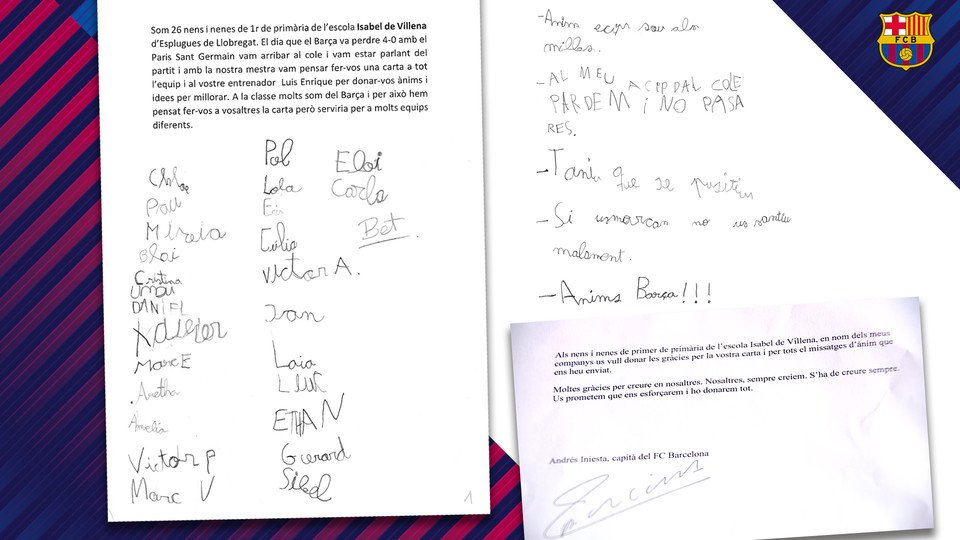 Som 26 nens i nenes de 1r de primària de l'escola Isabel de Villena
d'Esplugues de Llobregat. El dia que el Barça va perdre 4-0 amb el
Paris Sant Germain vam arribar al cole i vam estar parlant del
partit i amb la nostra mestra vam pensar fer-vos una carta a tot
l'equip i al vostre entrenador Luis Enrique per donar-vos ànims i
idees per millorar. A la classe molts som del Barça i per això hem
pensat fer-vos a vosaltres la carta però serviria per a molts equips
diferents.
Chloe
Pau
Mireia
Blai
Cristina
DANIEL
Xavier
MARC E
Aretha
Amelia
Victor P
Marc V
Pol
Lola
Júlia
VICTOR A.
Joan
Laia
LLUC
ETHAN
Gerard
Sibel
Eloi
Carla
Bet
1
-Anim
sou als
millos.
-AL MEU COLE
PARDEM I NO PASA
RES.
- que se
- Si usmarcan no us
malament.
-Anims Barça!!!
FCB
Als nens i nenes de primer de primària de l'escola Isabel de Villena, en nom dels meus
companys us vull donar les gràcies per la vostra carta i per tots el missatges d'ànim que
ens heu enviat.
Moltes gràcies per creure en nosaltres. Nosaltres, sempre creiem. S'ha de creure sempre.
Us prometem que ens esforçarem i ho donarem tot.
Andrés Iniesta, capità del FC Barcelona